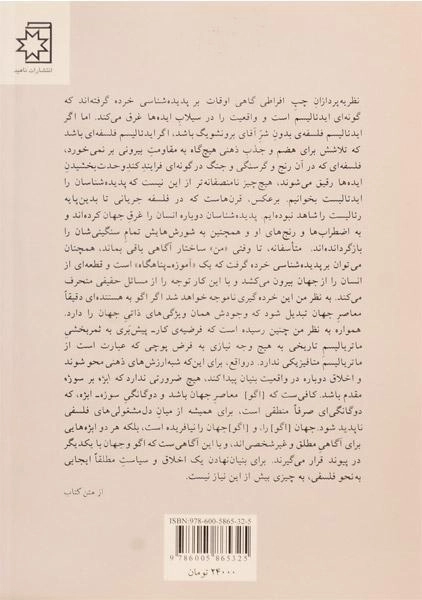 انتشارات ناهید
نظریه‌پردازانِ چپِ افراطی گاهی اوقات بر پدیده‌شناسی خرده گرفته‌اند که
گونه‌ای ایدئالیسم است و واقعیت را در سیلابِ ایده‌ها غرق می‌کند. اما اگر
ایدئالیسم فلسفه‌ی بدونِ شرِّ آقای برونشویگ باشد، اگر ایدئالیسم فلسفه‌ای باشد
که تلاشش برای هضم و جذب ذهنی هیچ‌گاه به مقاومتِ بیرونی بر نمی‌خورد،
فلسفه‌ای که در آن رنج و گرسنگی و جنگ درگونه‌ای فرایندِ کندِ وحدت‌بخشیدنِ
ایده‌ها رقیق می‌شوند، هیچ‌چیز نامنصفانه‌تر از این نیست که پدیده‌شناسان را
ایدئالیست بخوانیم. برعکس، قرن‌هاست که در فلسفه جریانی تا بدین‌پایه
رئالیست را شاهد نبوده‌ایم. پدیده‌شناسان دوباره انسان را غرق جهان کرده‌اند و
به اضطراب‌ها و رنج‌های او و همچنین به شورش‌هایش تمام سنگینی‌شان را
بازگردانده‌اند. متأسفانه، تا وقتی «من» ساختار آگاهی باقی بماند، همچنان
می‌توان بر پدیده‌شناسی خرده گرفت که یک «آموزه‌ـ‌پناهگاه» است و قطعه‌ای از
انسان را از جهان بیرون می‌کشد و با این کار توجه را از مسائل حقیقی منحرف
می‌کند. به نظر من این خرده‌گیری ناموجه خواهد شد اگر اگو به هستنده‌ای دقیقاً
معاصرِ جهان تبدیل شود که وجودش همان ویژگی‌های ذاتی جهان را دارد.
همواره به نظر من چنین رسیده است که فرضیه‌ی کارـ پیش‌بَری به ثمربخشیِ
ماتریالیسم تاریخی به هیچ وجه نیازی به فرض پوچی که عبارت است از
ماتریالیسم متافیزیکی ندارد. درواقع، برای این‌که شبه‌ارزش‌های ذهنی محو شوند
و اخلاق دوباره در واقعیت بنیان پیدا کند، هیچ ضرورتی ندارد که ابژه بر سوژه
مقدم باشد. کافی‌ست که [اگو] معاصرِ جهان باشد و دوگانگیِ سوژه‌ـ ابژه، که
دوگانه‌ای صرفاً منطقی است، برای همیشه از میانِ دل‌مشغولی‌های فلسفی
ناپدید شود. جهان [اگو] را، و [اگو] جهان را نیافریده است، بلکه هر دو ابژه‌هایی
برای آگاهیِ مطلق و غیرشخصی‌اند، و با این آگاهی‌ست که اگو و جهان با یکدیگر
در پیوند قرار می‌گیرند. برای بنیان‌نهادنِ یک اخلاق و سیاستِ مطلقاً ایجابی
به‌نحو فلسفی، به چیزی بیش از این نیاز نیست.
از متن کتاب
ISBN:978-600-5865-32-5
9 786005 865325
۲۴۰۰۰ تومان